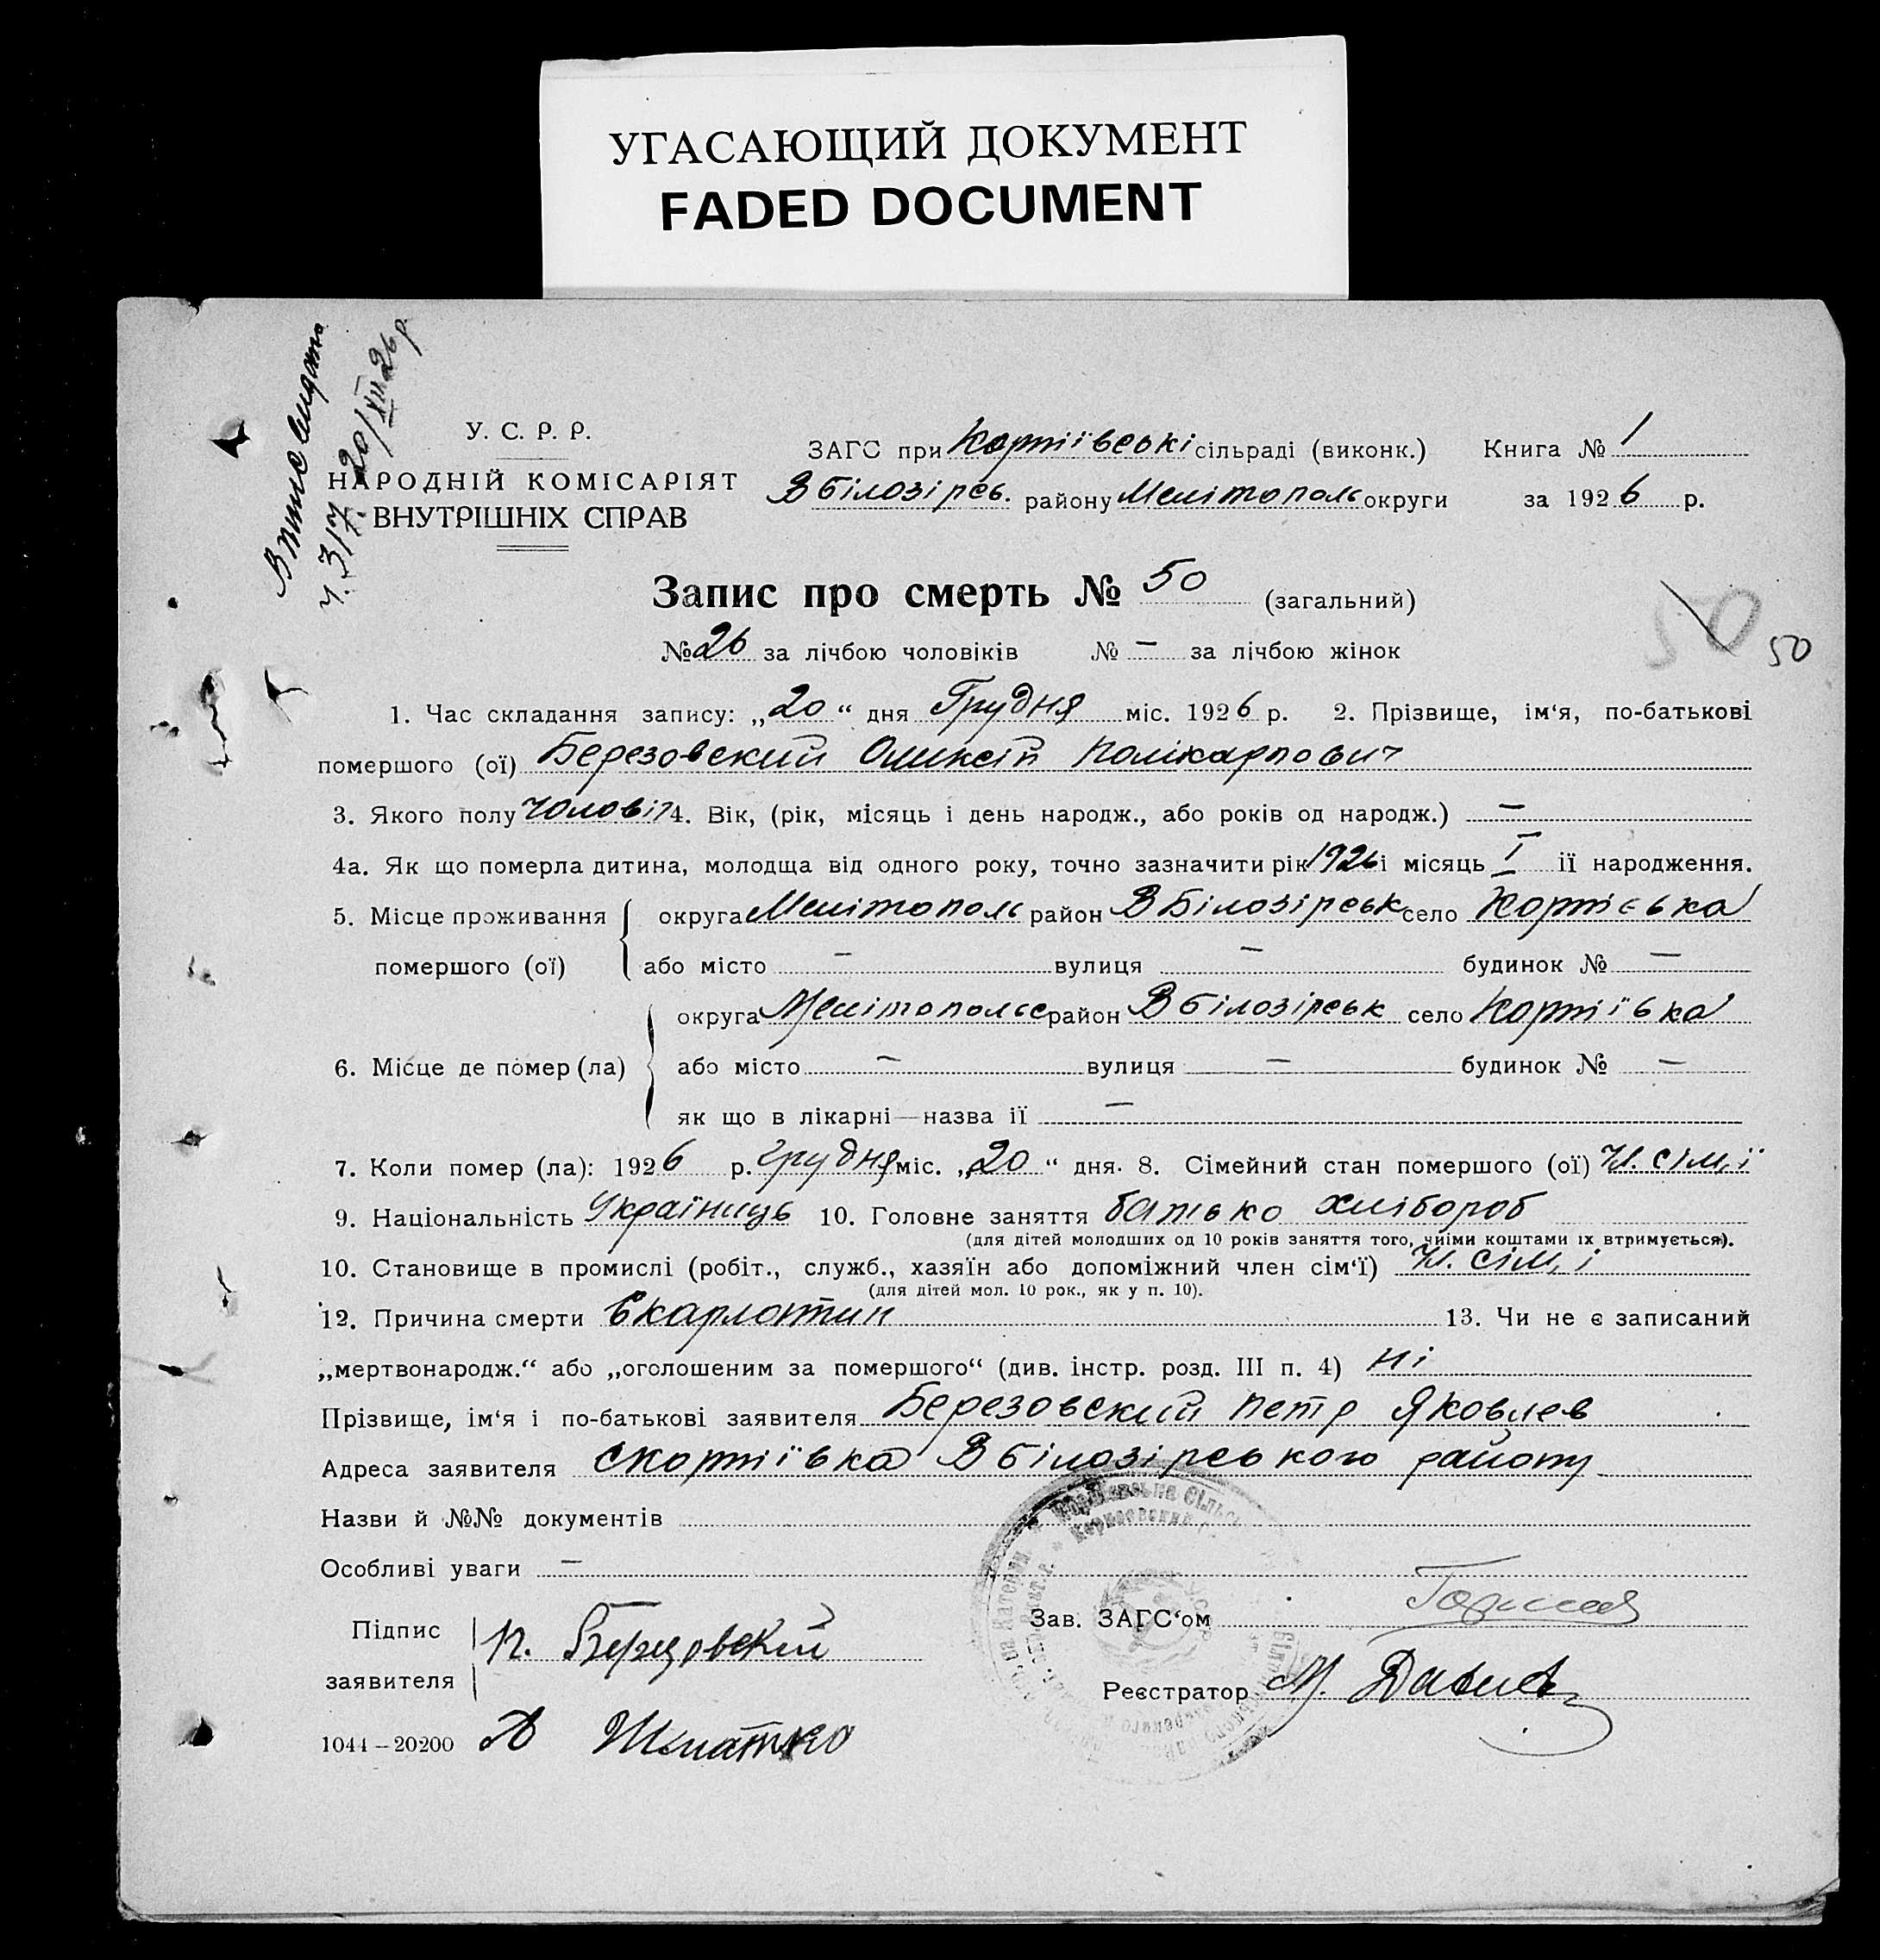 УГАСАЮЩИЙ ДОКУМЕНТ
FADED DOCUMENT
ч. 317 20/XII 26 р
У. С. Р. Р.
НАРОДНІЙ КОМІСАРІЯТ
ВНУТРІШНІХ СПРАВ
ЗАГС при Картіївські сільраді (виконк.) Книга № 1
В білозірсь. району Мелітополь округи за 1926 р.
Запис про смерть № 50 (загальний)
50 50
№ 26 за лічбою чоловіків № — за лічбою жінок
1. Час складання запису: „20“ дня Грудня міс. 1926 р. 2. Прізвище, ім‘я, по-батькові
помершого (ої) Березовский Оликсій Полікарпович
3. Якого полу Чоловіч 4. Вік, (рік, місяць і день народж., або років од народж.) —
4а. Як що померла дитина, молодща від одного року, точно зазначити рік 1926 і місяць I ії народження.
5. Місце проживання округа Мелітополь район В Білозірськ село Кортієвка
помершого (ої) або місто — вулиця — будинок № —
округа Мелітопольс район В білозірськ село Кортіївка
6. Місце де помер (ла) або місто — вулиця — будинок № —
як що в лікарні—назва ії —
7. Коли помер (ла): 1926 р. грудня міс. „20“ дня. 8. Сімейний стан помершого (ої) Чл. сім,ї
9. Національність Українць 10. Головне заняття батько хлібороб
(для дітей молодших од 10 років заняття того, чиїми коштами їх втримується).
10. Становище в промислі (робіт., служб., хазяїн або допоміжний член сім‘ї) Чл. сім,ї
(для дітей мол. 10 рок., як у п. 10).
12. Причина смерти Скарлотин 13. Чи не є записаний
„мертвонародж.“ або „оголошеним за помершого“ (див. інстр. розд. III п. 4) Ні
Прізвище, ім‘я і по-батькові заявителя Березовский Петр Яковлев
Адреса заявителя с Кортіївка В білозірського району
Назви й №№ документів
Особливі уваги —
Підпис
заявителя П. Березовский
Зав. ЗАГС‘ом
Реєстратор М.
1044—20200